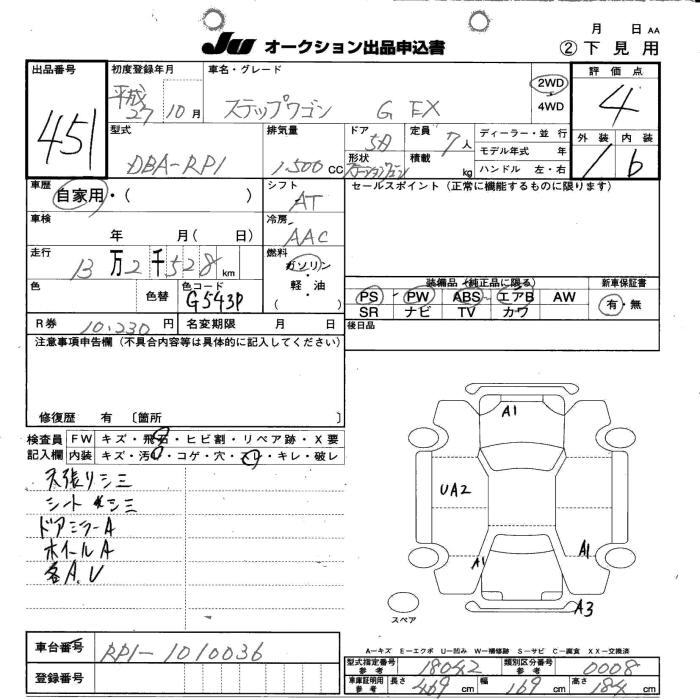 JU オークション出品申込書
月 日 AA
② 下見用
出品番号
451
初度登録年月
平成27 10月
車名・グレード
ステップワゴン G EX
2WD
・
4WD
評価点
4
型式
DBA-RP1
排気量
1.500 cc
ドア
5D
定員
7人
形状
ステーションワゴン
積載
kg
ディーラー・並行
モデル年式 年
ハンドル 左・右
外装 内装
1 b
車歴
自家用・( )
シフト
AT
セールスポイント (正常に機能するものに限ります)
車検
年 月( 日)
冷房
AAC
走行
13万2千528km
燃料
ガソリン
・
軽・油
( )
色
色替
色コード
G543P
装備品 (純正品に限る)
新車保証書
PS・PW・ABS・エアB AW
SR ナビ TV カワ
有・無
R券 10.230円
名変期限 月 日
後日品
注意事項申告欄 (不具合内容等は具体的に記入してください)
修復歴 有 〔箇所 〕
検査員
記入欄
FW キズ・飛石・ヒビ割・リペア跡・X要
内装 キズ・汚れ・コゲ・穴・スレ・キレ・破レ
天張りシミ
シート シミ
ドアミラーA
ホイールA
各A.U
A1
UA2
A1
A1
A3
スペア
A－キズ E－エクボ U－凹み W－補修跡 S－サビ C－腐食 XX－交換済
車台番号
RP1-1010036
登録番号
型式指定番号
参考
18042
類別区分番号
参考
0008
車庫証明用
参考
長さ 469 cm
幅 169 cm
高さ 184 cm